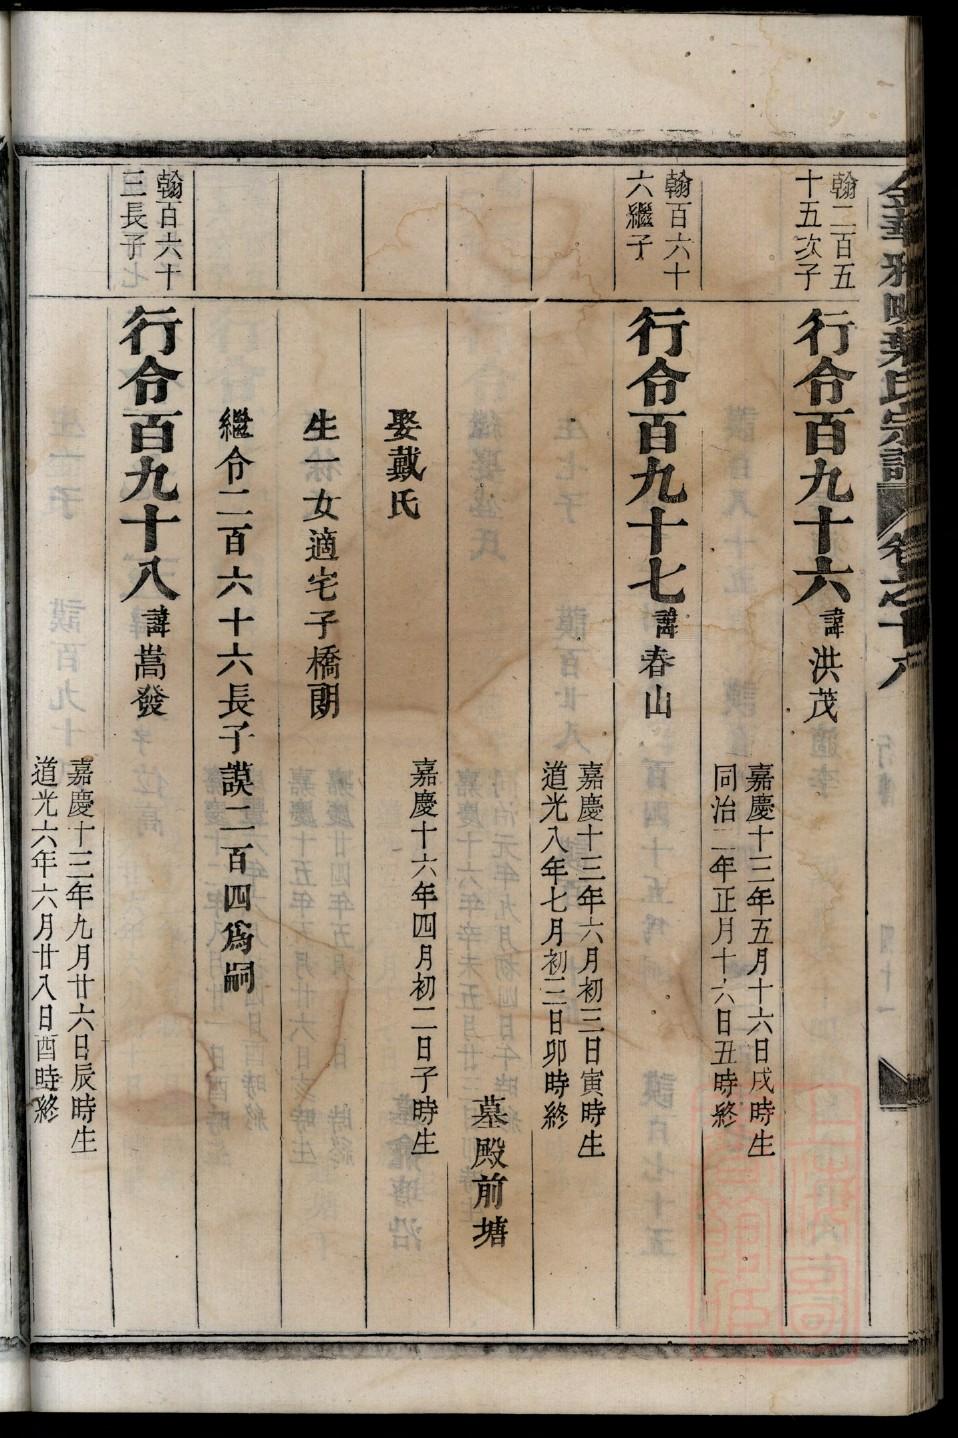 金華雅畈葉氏宗譜 卷之十八
翰二百五
十五次子
行令百九十六 諱洪茂
嘉慶十三年五月十六日戌時生
同治二年正月十六日丑時終
翰百六十
六繼子
行令百九十七 諱春山
嘉慶十三年六月初三日寅時生
道光八年七月初三日卯時終
墓殿前塘
娶戴氏
嘉慶十六年四月初二日子時生
生一女適宅子橋朗
繼令二百六十六長子謨二百四爲嗣
翰百六十
三長子
行令百九十八 諱嵩發
嘉慶十三年九月廿六日辰時生
道光六年六月廿八日酉時終